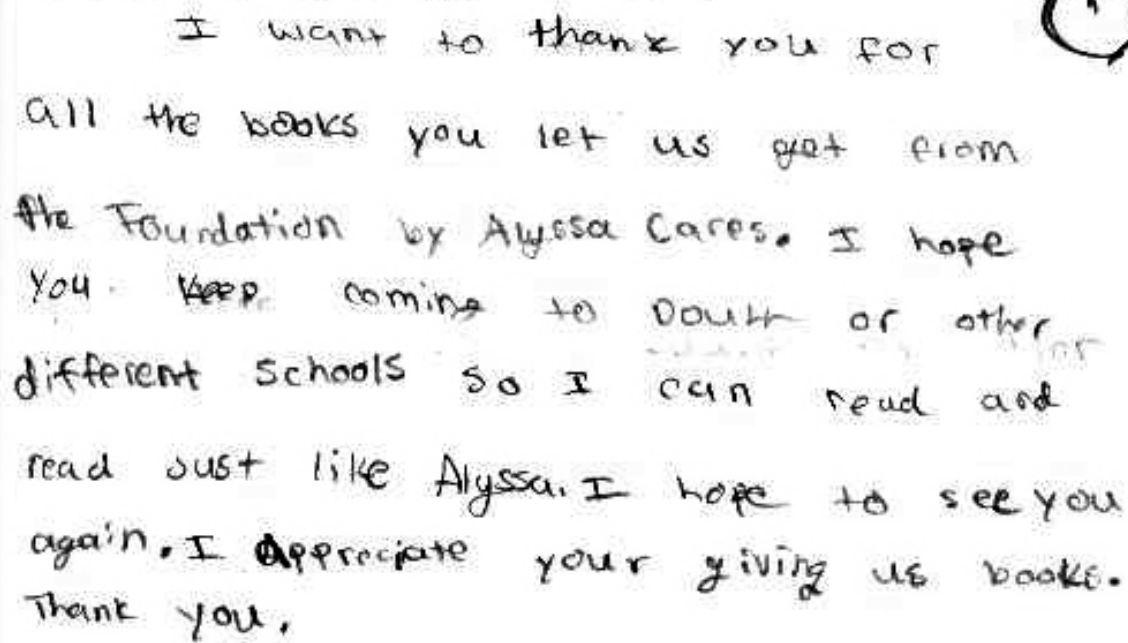 I want to thank you for
all the books you let us get from
the Foundation by Alyssa Cares. I hope
you keep coming to or other
different schools so I can read and
read just like Alyssa. I hope to see you
again. I Appreciate your giving us books.
Thank you.